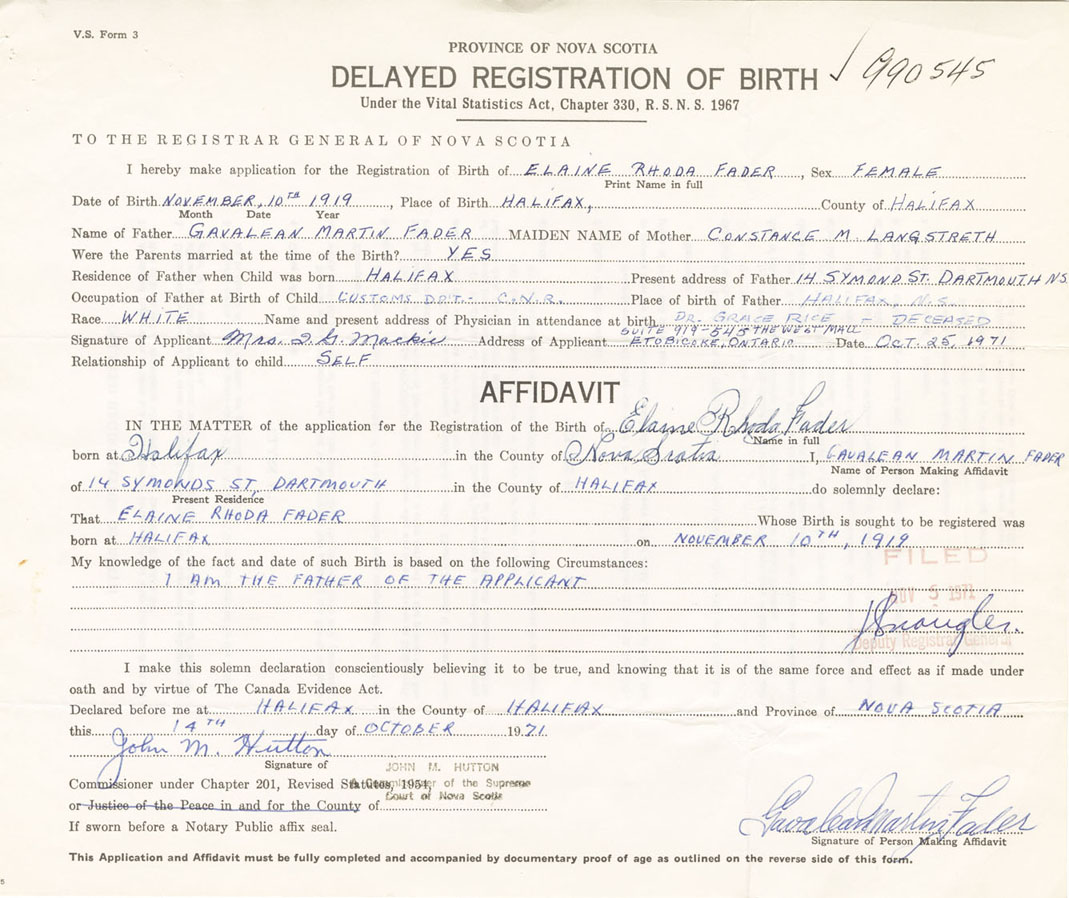 V.S. Form 3
PROVINCE OF NOVA SCOTIA
DELAYED REGISTRATION OF BIRTH 990545
Under the Vital Statistics Act, Chapter 330, R. S. N. S. 1967
TO THE REGISTRAR GENERAL OF NOVA SCOTIA
I hereby make application for the Registration of Birth of ELAINE RHODA FADER, Sex FEMALE
Print Name in full
Date of Birth NOVEMBER, 10TH 1919, Place of Birth HALIFAX, County of HALIFAX
Month Date Year
Name of Father GAVALEAN MARTIN FADER MAIDEN NAME of Mother CONSTANCE M. LANGSTRETH
Were the Parents married at the time of the Birth? YES
Residence of Father when Child was born HALIFAX Present address of Father 14 SYMOND ST. DARTMOUTH N.S.
Occupation of Father at Birth of Child CUSTOMS DPT. - C.N.R. Place of birth of Father HALIFAX, N.S.
Race WHITE Name and present address of Physician in attendance at birth DR. GRACE RICE - DECEASED
SUITE 919-545 THE WEST MALL
Signature of Applicant Mrs. I. G. Mackie Address of Applicant ETOBICOKE, ONTARIO Date OCT. 25, 1971
Relationship of Applicant to child SELF
AFFIDAVIT
IN THE MATTER of the application for the Registration of the Birth of Elaine Rhoda Fader
Name in full
born at Halifax in the County of Nova Scotia I, GAVALEAN MARTIN FADER
Name of Person Making Affidavit
of 14 SYMONDS ST, DARTMOUTH in the County of HALIFAX do solemnly declare:
Present Residence
That ELAINE RHODA FADER Whose Birth is sought to be registered was
born at HALIFAX on NOVEMBER 10TH, 1919
FILED
My knowledge of the fact and date of such Birth is based on the following Circumstances:
I AM THE FATHER OF THE APPLICANT
NOV 5 1971
Deputy Registrar General
I make this solemn declaration conscientiously believing it to be true, and knowing that it is of the same force and effect as if made under
oath and by virtue of The Canada Evidence Act.
Declared before me at HALIFAX in the County of HALIFAX and Province of NOVA SCOTIA
this 14TH day of OCTOBER 1971.
John M. Hutton
Signature of JOHN M. HUTTON
Commissioner under Chapter 201, Revised Statutes, 1954,
A Commissioner of the Supreme
Court of Nova Scotia
or Justice of the Peace in and for the County of
If sworn before a Notary Public affix seal.
Gavalean Martin Fader
Signature of Person Making Affidavit
This Application and Affidavit must be fully completed and accompanied by documentary proof of age as outlined on the reverse side of this form.
5